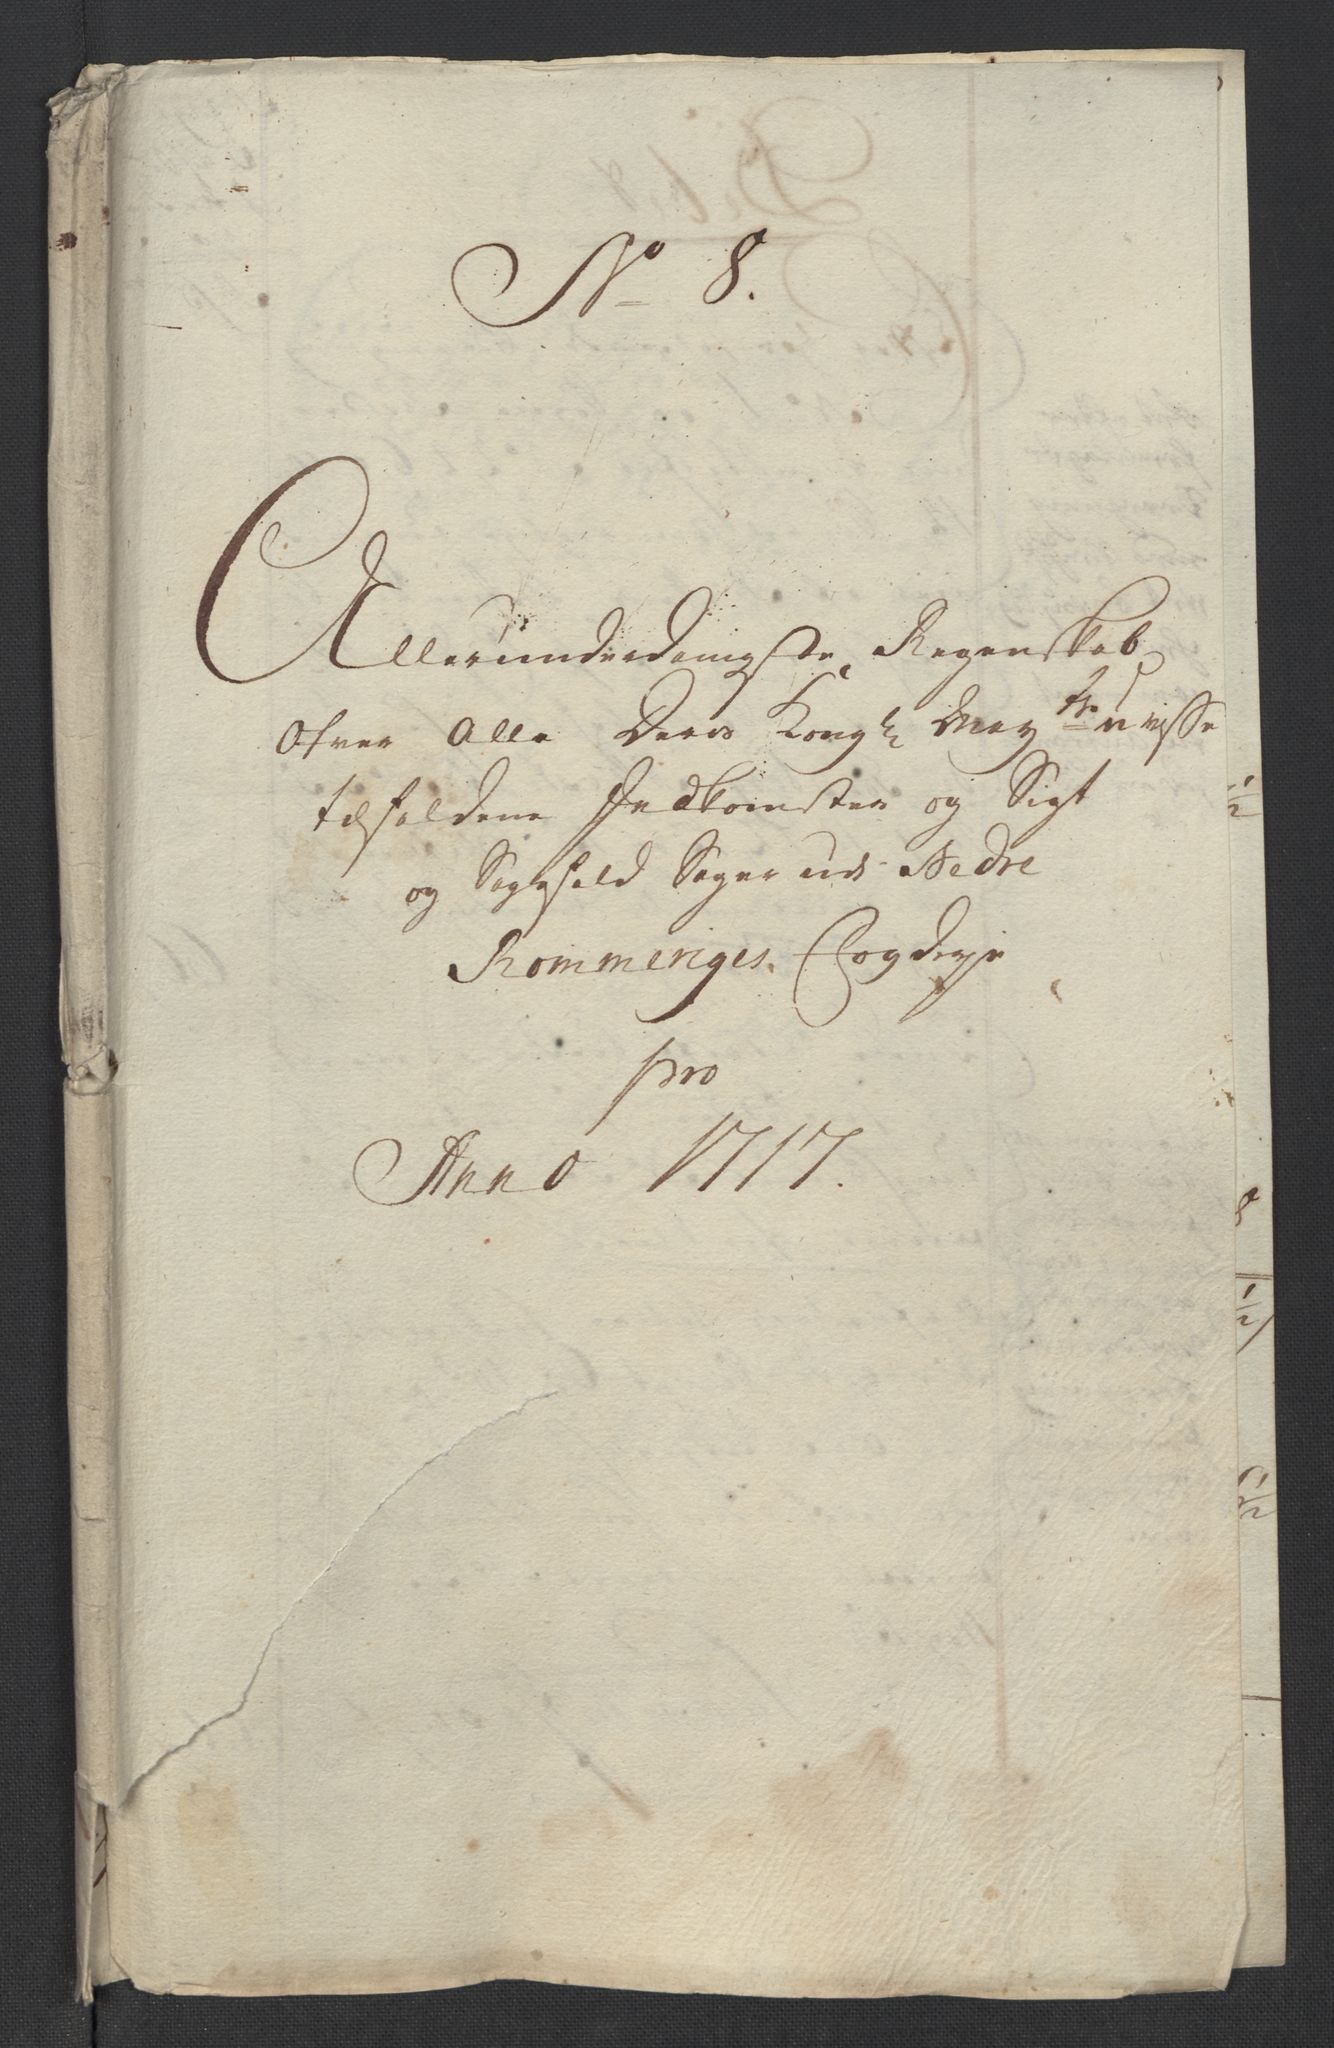 No 8.
Allerunderdanigste Regenskab
Ofver Alle Deris Kongl May ts uvisse
tilfaldene Indkomster og Sigt
og Sagefald Sager udi Nedre
Rommeriges Fogderje
pro
Anno 1717.